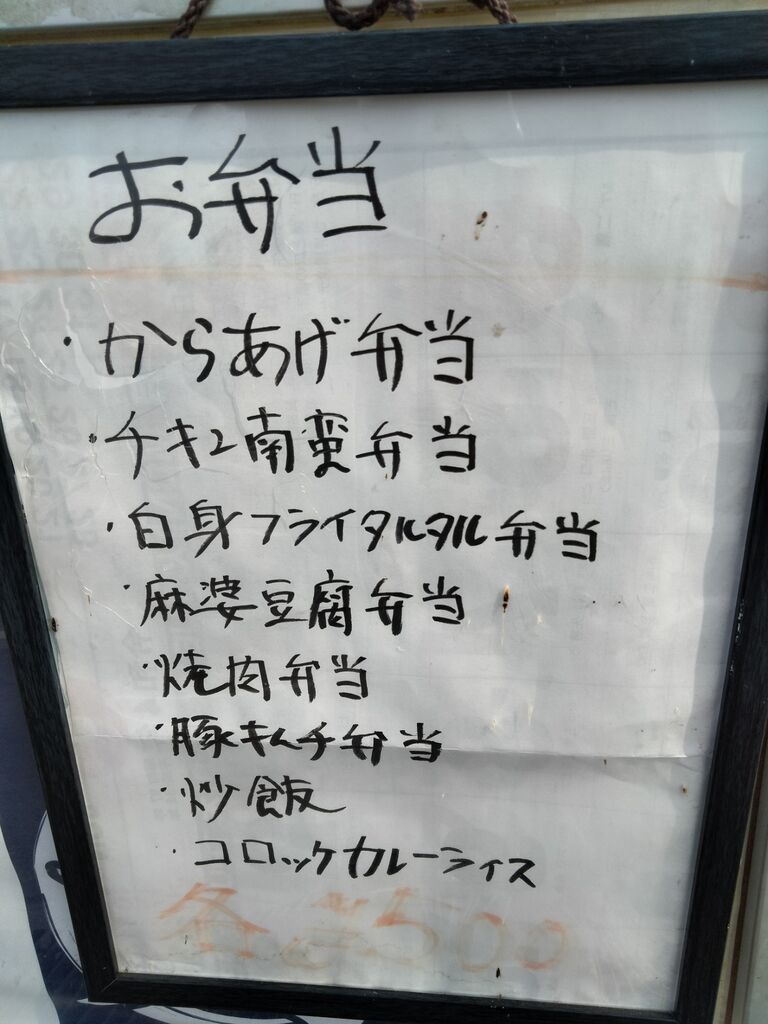 お弁当
・からあげ弁当
・チキン南蛮弁当
・白身フライタルタル弁当
・麻婆豆腐弁当
・焼肉弁当
・豚キムチ弁当
・炒飯
・コロッケカレーライス
各¥500